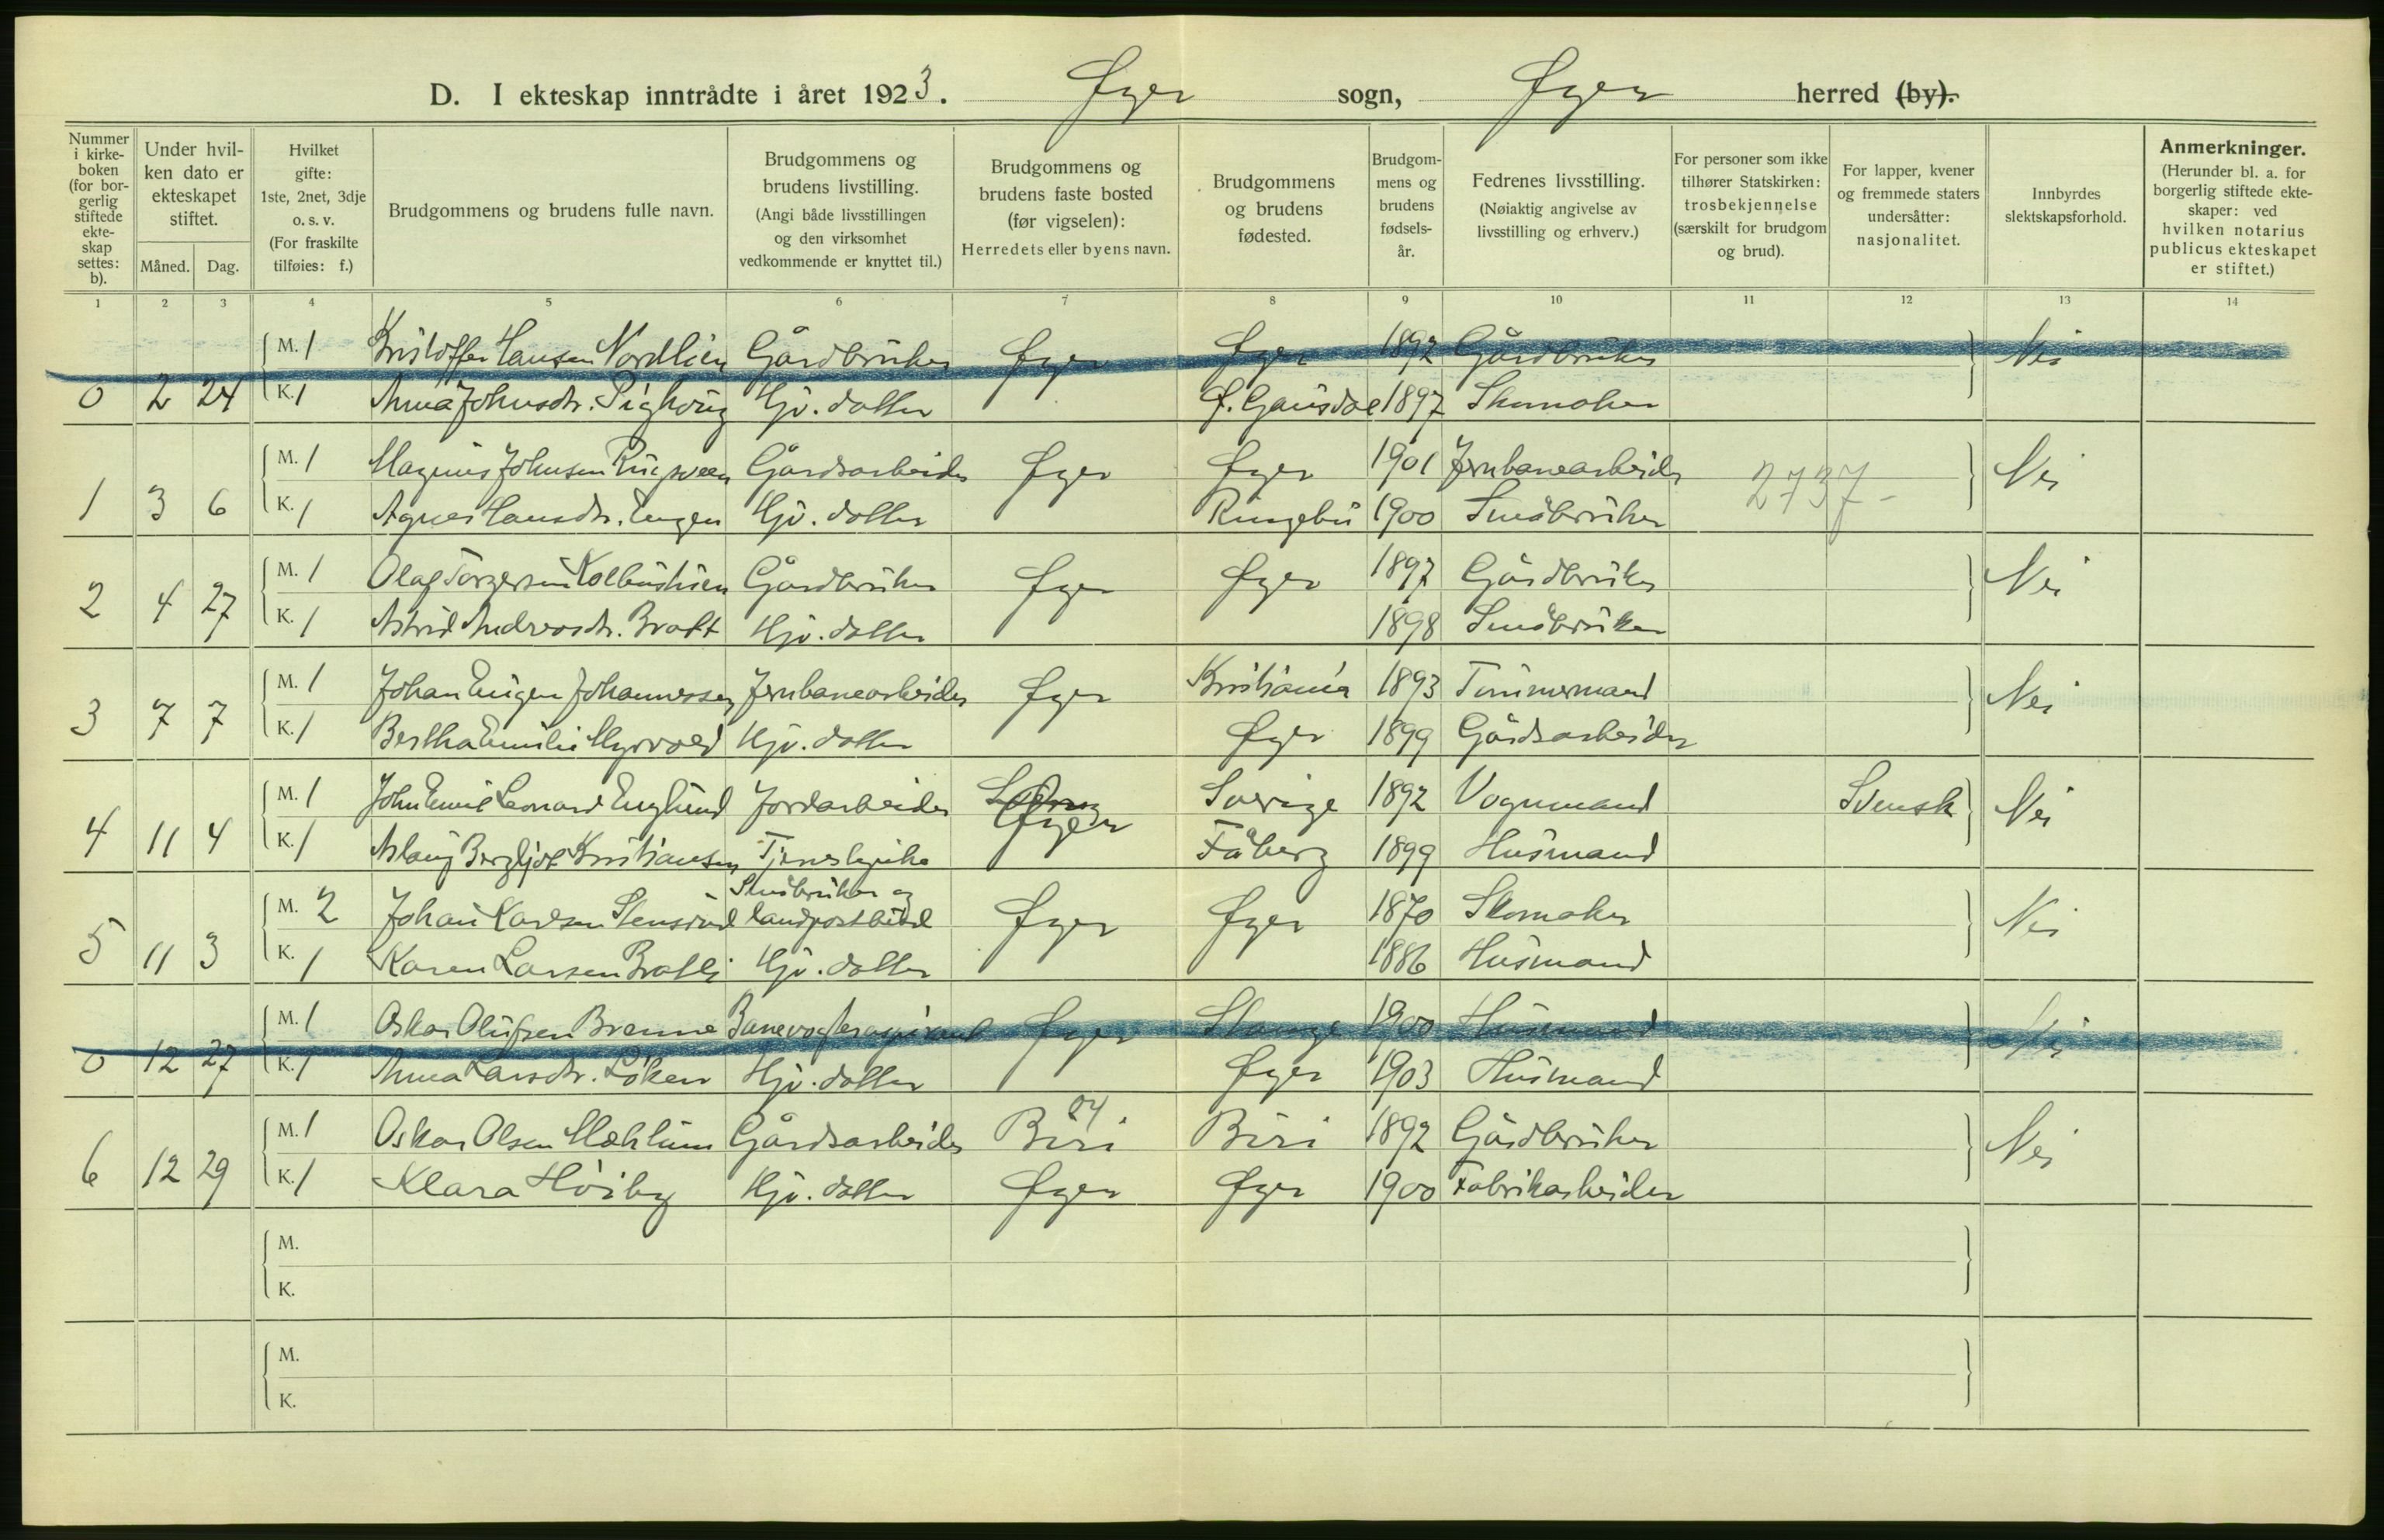 D. I ekteskap inntrådte i året 1923. Øyer sogn, Øyer herred (by).
Nummer i kirkeboken (for borgerlig stiftede ekteskap settes: b).
Under hvilken dato er ekteskapet stiftet.
Måned. Dag.
Hvilket gifte: 1ste, 2net, 3dje o. s. v. (For fraskilte tilføies: f.)
Brudgommens og brudens fulle navn.
Brudgommens og brudens livstilling. (Angi både livsstillingen og den virksomhet vedkommende er knyttet til.)
Brudgommens og brudens faste bosted (før vigselen): Herredets eller byens navn.
Brudgommens og brudens fødested.
Brudgommens og brudens fødselsår.
Fedrenes livsstilling. (Nøiaktig angivelse av livsstilling og erhverv.)
For personer som ikke tilhører Statskirken: trosbekjennelse (særskilt for brudgom og brud).
For lapper, kvener og fremmede staters undersåtter: nasjonalitet.
Innbyrdes slektskapsforhold.
Anmerkninger. (Herunder bl. a. for borgerlig stiftede ekteskaper: ved hvilken notarius publicus ekteskapet er stiftet.)
1 2 3 4 5 6 7 8 9 10 11 12 13 14
M. 1 Kristoffer Hansen Nordlien Gårdbruker Øyer Øyer 1892 Gårdbruker Nei
0 2 24 K. 1 Anna Johnsdtr. Hjv. datter Ø. Gausdal 1897 Skomaker
M. 1 Magnus Johnsen Gårdsarbeider Øyer Øyer 1901 Jernbanearbeider 2737- Nei
1 3 6 K. 1 Agnes Hansdtr. Engen Hjv. datter Ringebu 1900 Småbruker
M. 1 Olaf Torgersen Gårdbruker Øyer Øyer 1897 Gårdbruker Nei
2 4 27 K. 1 Astrid Andreasdtr. Bratt Hjv. datter 1898 Småbruker
M. 1 Johan Eugen Johannessen Jernbanearbeider Øyer Kristiania 1893 Tømmermand Nei
3 7 7 K. 1 Bertha Emilie Myrvold Hjv. datter Øyer 1899 Gårdsarbeider
M. 1 John Emil Leonard Englund Jordarbeider Øyer Sverige 1892 Vognmand Svensk Nei
4 11 4 K. 1 Aslaug Bergljot Kristiansen Tjenestepike Fåberg 1899 Husmand
Småbruker og
M. 2 Johan Karlsen Stensrud landpostbud Øyer Øyer 1870 Skomaker Nei
5 11 3 K. 1 Karen Larsen Bratli Hjv. datter 1886 Husmand
M. 1 Oskar Olufsen Brenne Banevogteraspirant Øyer Stange 1900 Husmand Nei
0 12 27 K. 1 Anna Larsdtr. Løken Hjv. datter Øyer 1903 Husmand
M. 1 Oskar Olsen Mæhlum Gårdsarbeider Biri 04 Biri 1892 Gårdbruker Nei
6 12 29 K. 1 Klara Høiby Hjv. datter Øyer Øyer 1900 Fabrikarbeider
M.
K.
M.
K.